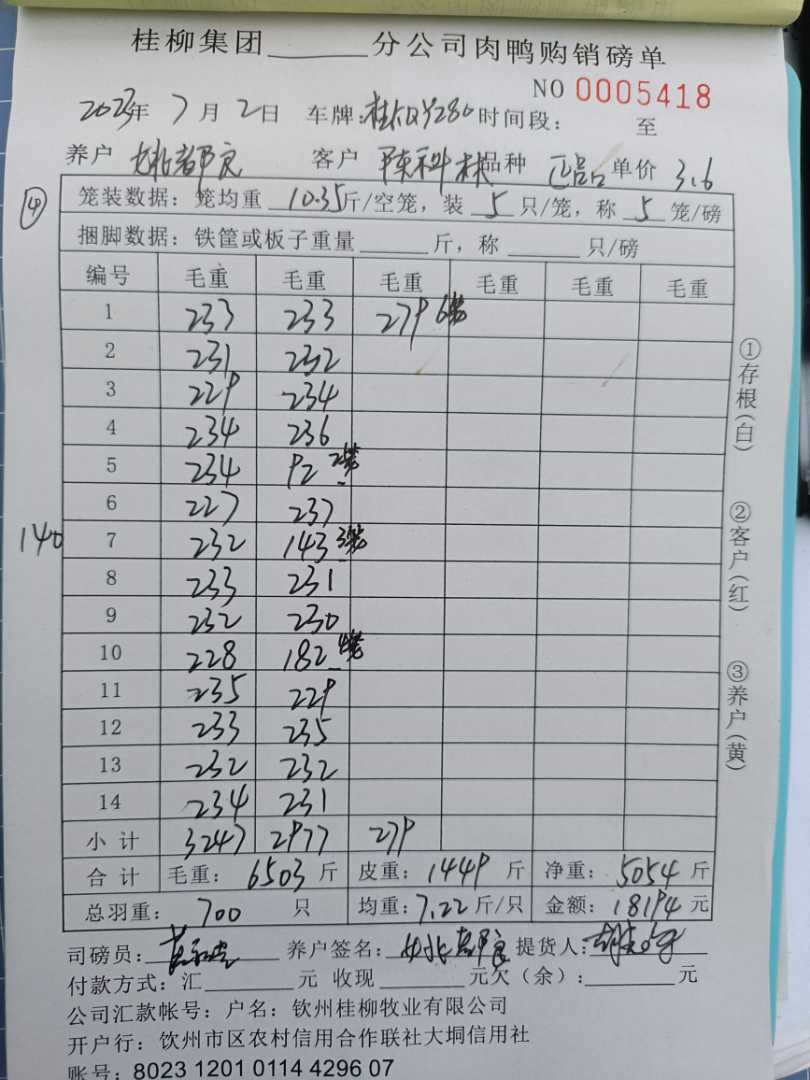 桂柳集团______分公司肉鸭购销磅单
NO 0005418
2023年 7月 2日 车牌: 时间段: 至
养户 姚都良 客户 陈科林 品种 正品 单价 3.6
④ 笼装数据：笼均重 10.35斤/空笼，装 5 只/笼，称 5 笼/磅
捆脚数据：铁筐或板子重量______斤，称______只/磅
编号 毛重 毛重 毛重 毛重 毛重 毛重
1 233 233 279 6笼
2 231 232
3 229 234
4 234 236
5 234 92 2笼
6 227 237
140 7 232 143 3笼
8 233 231
9 232 230
10 228 182 4笼
11 235 229
12 233 235
13 232 232
14 234 231
小计 3247 2977 279
合计 毛重：6503 斤 皮重：1449 斤 净重：5054 斤
总羽重：700 只 均重：7.22 斤/只 金额：18194 元
司磅员： 养户签名： 提货人：
付款方式：汇______元 收现______元欠（余）:______元
公司汇款帐号：户名：钦州桂柳牧业有限公司
开户行：钦州市区农村信用合作联社大垌信用社
账号：8023 1201 0114 4296 07
①存根(白)
②客户(红)
③养户(黄)